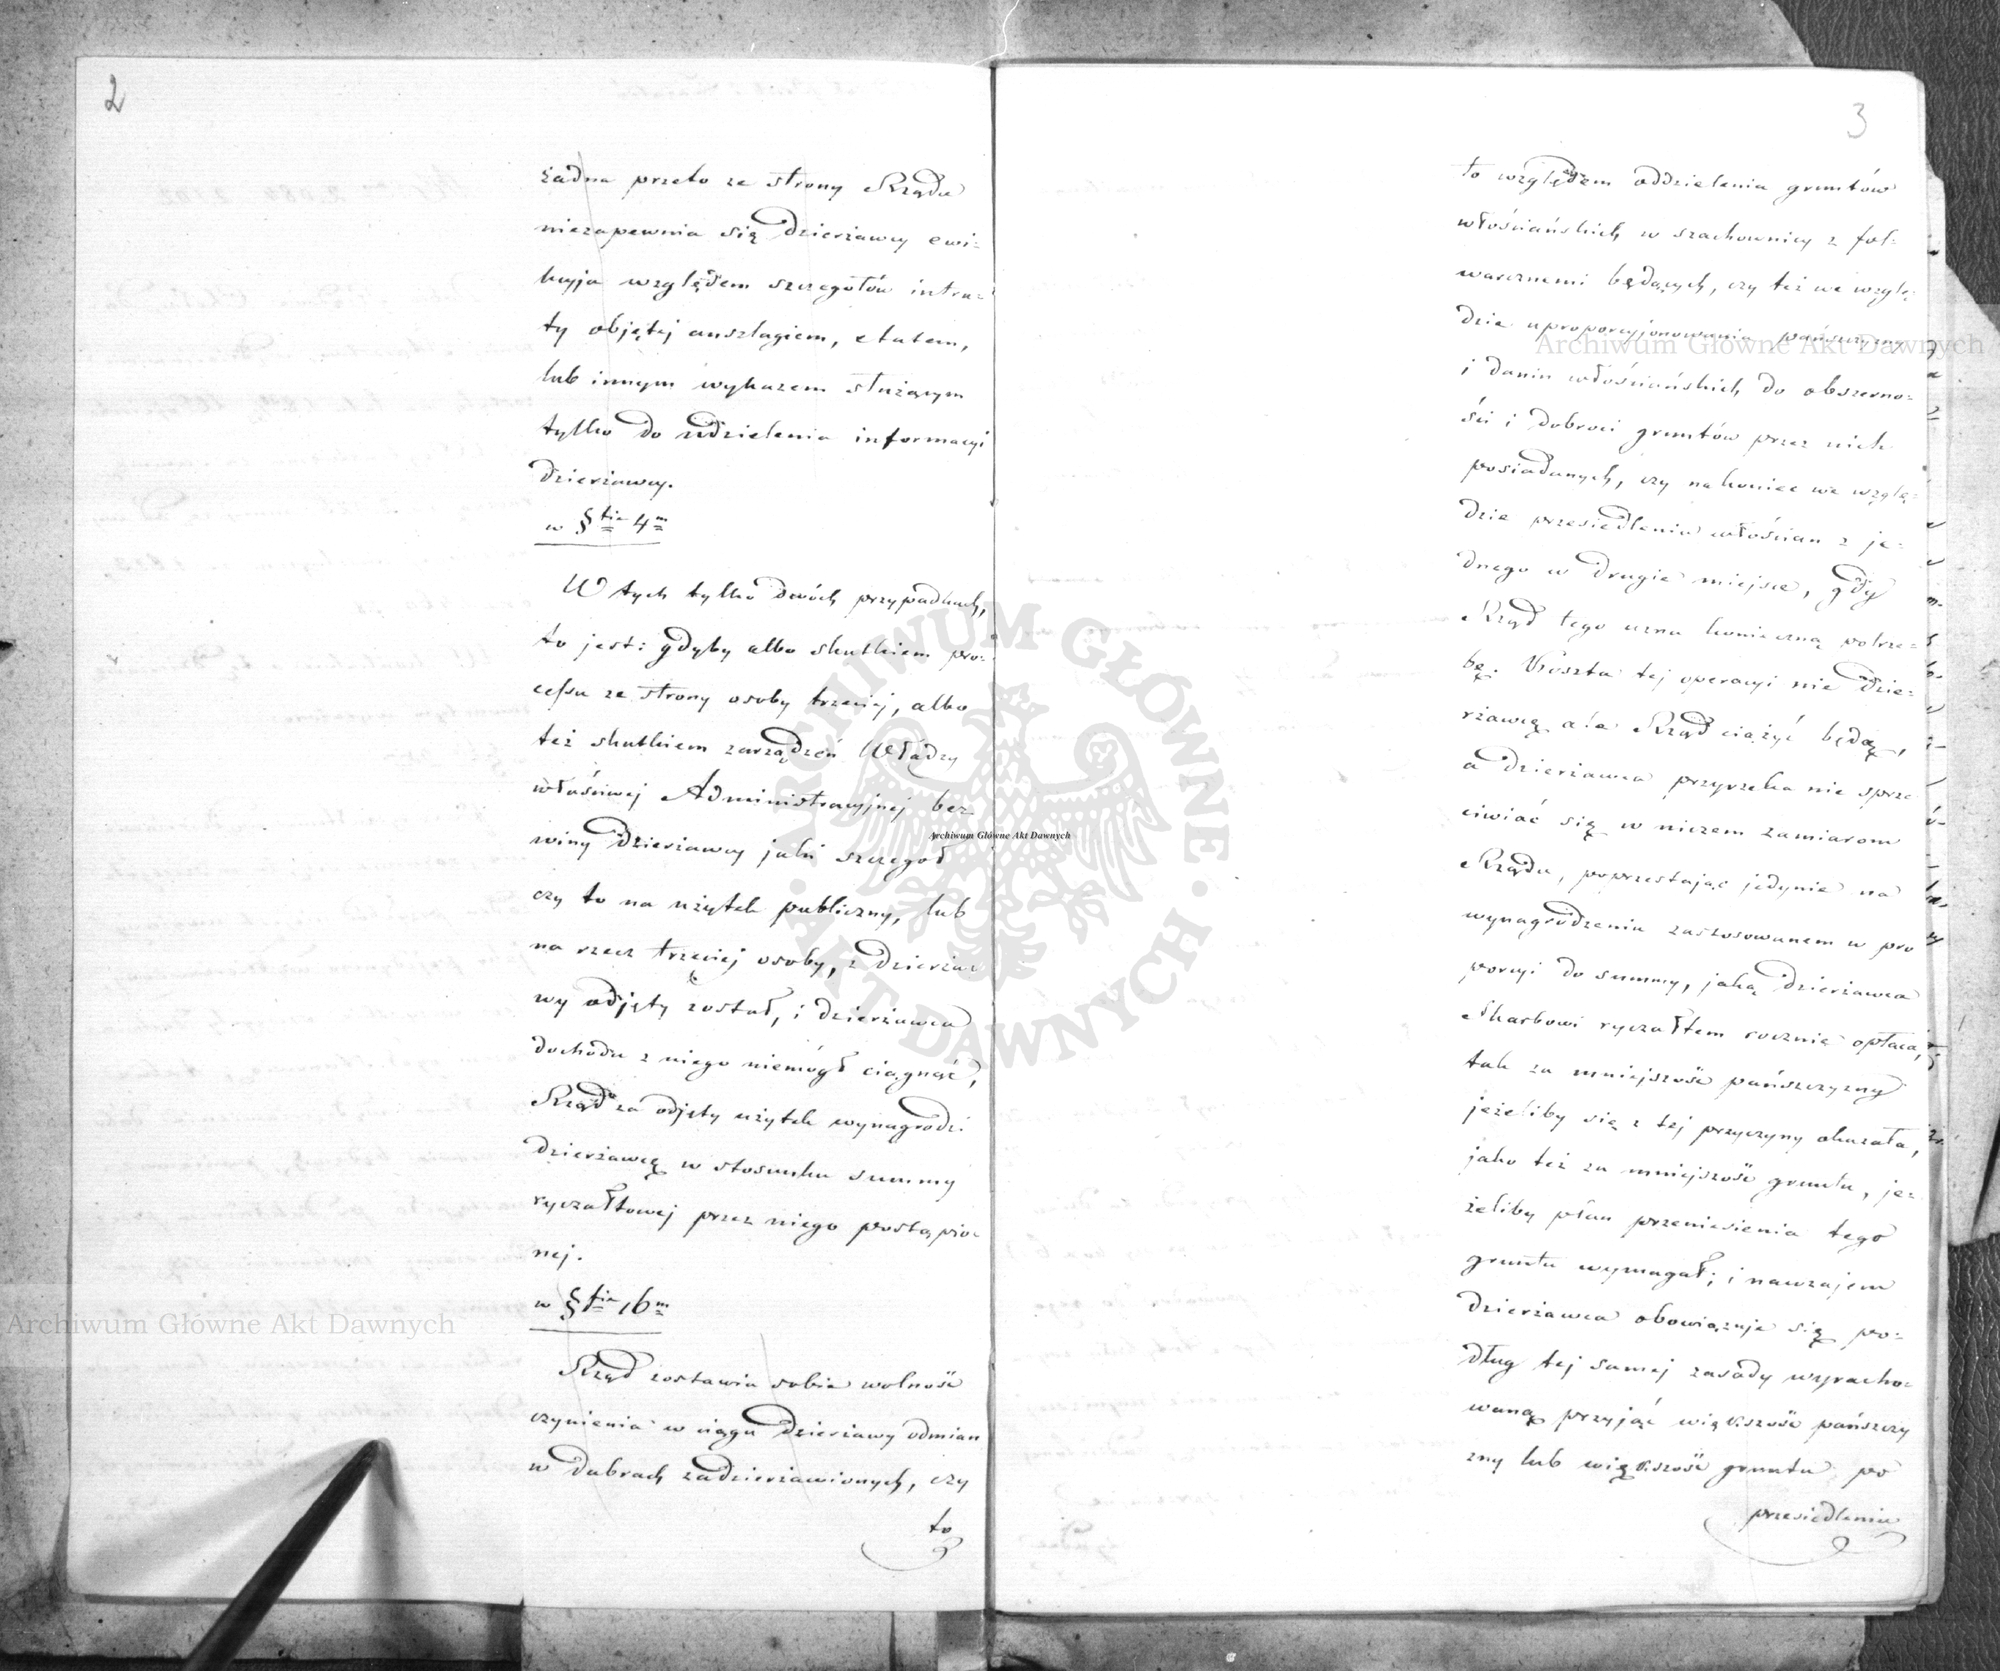 2
żadna przeto ze strony Rządu
niezapewnia się Dzierżawcy ewi-
kcyja względem szczegółów intra-
ty objętej anszlagiem, etatem,
lub innym wykazem służącym
tylko do udzielenia informacyi
Dzierżawcy.
w §fie 4m
W tych tylko dwóch przypadkach,
to jest: gdyby albo skutkiem pro-
cessu ze strony osoby trzeciej, albo
też skutkiem zarządzeń Władzy
właściwej Administracyjnej bez
winy Dzierżawcy jaki szczegół
czy to na użytek publiczny, lub
na rzecz trzeciej osoby, z dzierża-
wy odjęty został, i dzierżawca
dochodu z niego niemógł ciągnąć,
Rząd za odjęty użytek wynagrodzi
Dzierżawcę w stosunku summy
ryczałtowej przez niego postąpio-
nej.
w §fie 16m
Rząd zostawia sobie wolność
czynienia w ciągu Dzierżawy odmian
w dobrach zadzierżawionych, czy
to
3
to względem oddzielenia gruntów
włościańskich w szachownicy z fol-
warcznemi będących, czy też we wzglę-
dzie uproporcyjonowania pańszczyzny
i danin włościańskich do obszerno-
ści i dobroci gruntów przez nich
posiadanych, czy nakoniec we wzglę-
dzie przesiedlenia włościan z je-
dnego w drugie miejsce, gdy
Rząd tego uzna konieczną potrze-
bę. Koszta tej operacyi nie Dzie-
rżawcę ale Rząd ciążyć będą,
a dzierżawca przyrzeka nie sprze
ciwiać się w niczem zamiarom
Rządu, poprzestając jedynie na
wynagrodzeniu zastosowanem w pro
porcyi do summy, jaką Dzierżawca
Skarbowi ryczałtem rocznie opłaca,
tak za mniejszość pańszczyzny
jeżeliby się z tej przyczyny okazała,
jako też za mniejszość gruntu, je-
żeliby plan przeniesienia tego
gruntu wymagał; i nawzajem
Dzierżawca obowiązuje się po-
dług tej samej zasady wyracho-
waną przyjąć większość pańszczy
zny lub większość gruntu po
przesiedleniu
Archiwum Główne Akt Dawnych
Archiwum Główne Akt Dawnych
Archiwum Główne Akt Dawnych
ARCHIWUM GŁÓWNE AKT DAWNYCH